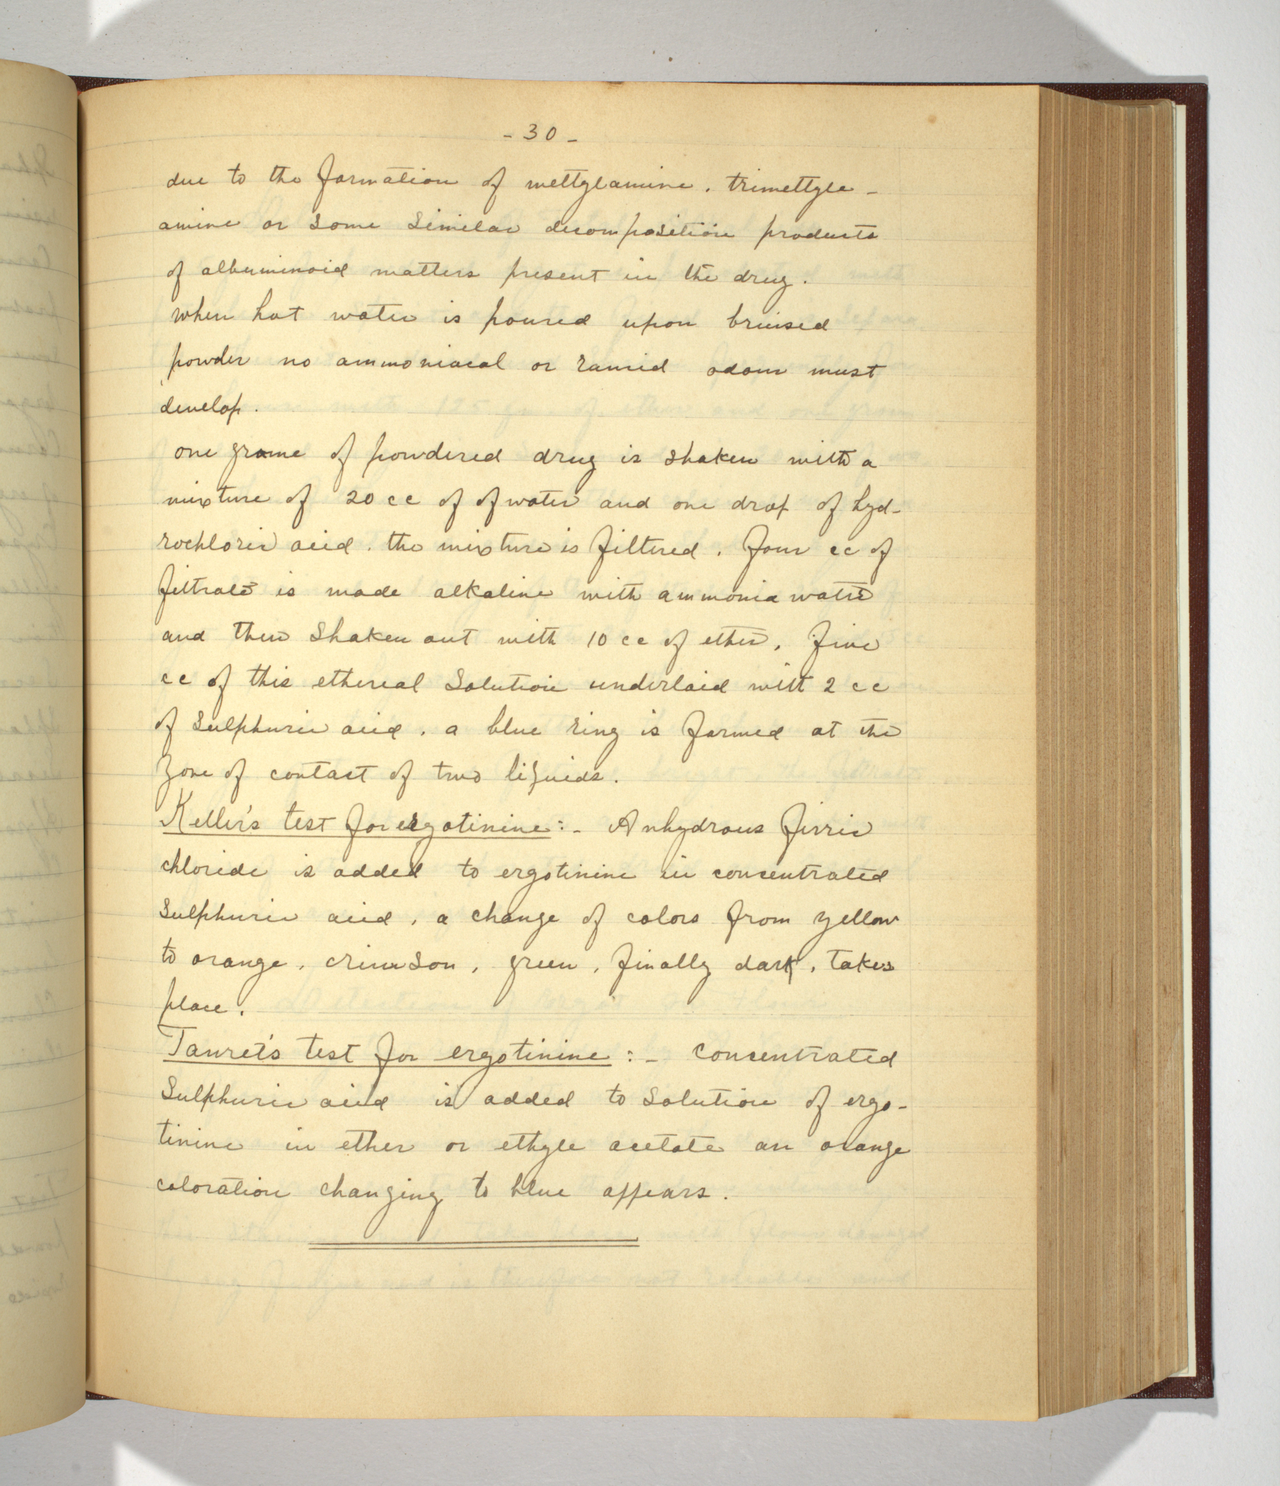 - 30 -
due to the formation of mettylamine, trimettyle -
amine or some similar decomposition products
of albuminoid matters present in the drug.
when hot water is poured upon bruised
powder no ammoniacal or rancid odour must
develop.
one grame of powdered drug is shaken with a
mixture of 20 cc of of water and one drop of hyd-
rochloric acid. the mixture is filtered. four cc of
filtrate is made alkaline with ammonia water
and then shaken out with 10 cc of ether. five
cc of this ethereal solution underlaid witt 2 cc
of sulphuric acid, a blue ring is formed at the
zone of contast of two liquids.
Keller's test for ergotinine :- Anhydrous firric
chloride is added to ergotinine in concentrated
sulphuric acid, a change of colors from yellow
to orange, crimson, green, finally dark, takes
place.
Tanret's test for ergotinine :- concentrated
sulphuric acid is added to solution of ergo-
tinine in ether or ethyle acetate an orange
coloration changing to blue appears.